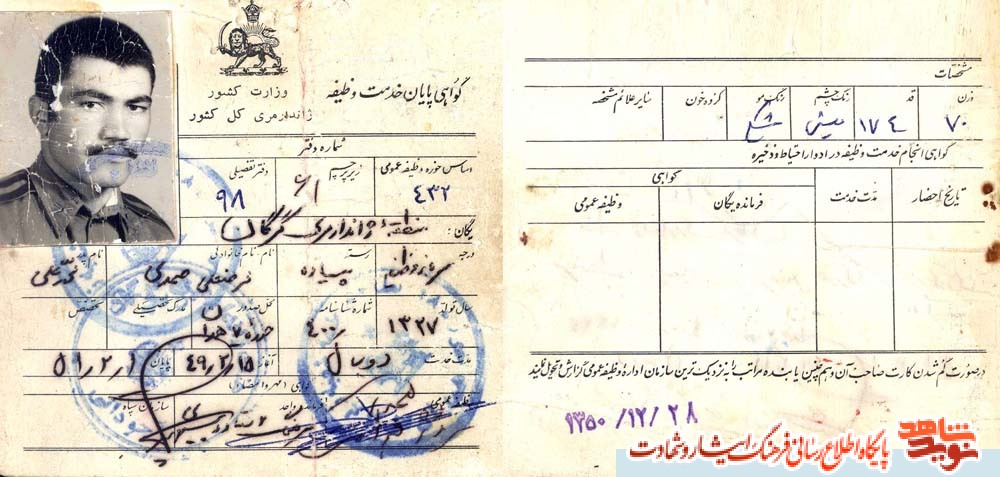 گواهی پایان خدمت وظیفه
وزارت کشور
ژاندارمری کل کشور
شماره دفتر
اساس حوزه وظیفه عمومی
زیر برچسب
دفتر تفصیلی
۴۳۲
۶۱
۹۸
یگان: منطقه ژاندارمری گرگان
درجه
رسته
نام، نام خانوادگی
نام پدر
سرباز وظیفه
پیاده
صمدی
سال تولد
شماره شناسنامه
محل صدور
مدرک تحصیلی
تخصص
۱۳۲۷
۴۰۰
حوزه ۷
مدت خدمت
دو سال
آغاز ۴۹/۲/۱۵
پایان
گواهی (مهر و امضاء)
وظیفه عمومی
فرمانده واحد
سازمان سپاه
مشخصات
وزن
قد
رنگ چشم
رنگ مو
گروه خون
سایر علائم مشخصه
۷۰
۱۷۴
میشی
گواهی انجام خدمت وظیفه در ادوار احتیاط و ذخیره
تاریخ احضار
مدت خدمت
گواهی
فرمانده یگان
وظیفه عمومی
در صورت گم شدن کارت صاحب آن و همچنین یابنده مراتب را به نزدیک ترین سازمان اداره وظیفه عمومی گزارش و تحویل نمایند
۱۳۵۰/۱۲/۲۸
نوید شاهد
پایگاه اطلاع رسانی فرهنگ ایثار و شهادت